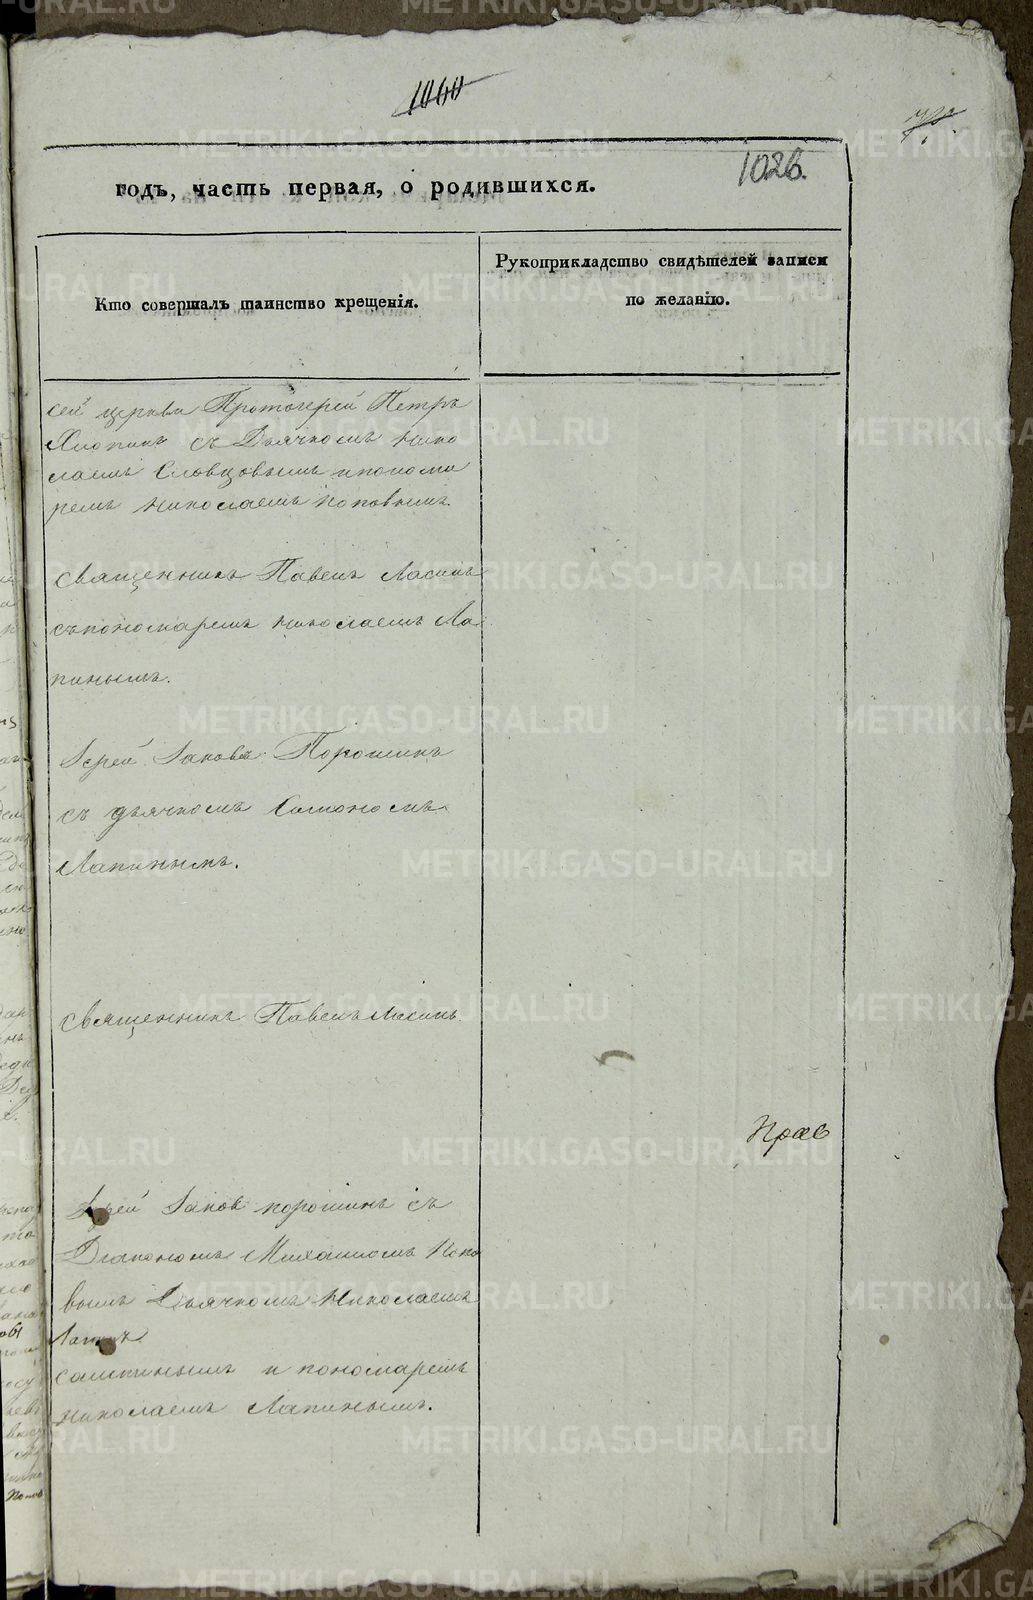 1060
1026.
годъ, часть первая, о родившихся.
Кто совершалъ таинство крещенія.
Рукоприкладство свидѣтелей записи
по желанію.
сей церкви Протоіерей Петръ
съ Дьячкомъ Нико
лаемъ Словцовымъ и понома
ремъ Николаемъ Поповымъ.
Священникъ Павелъ
съ пономаремъ Николаемъ Ла
пинымъ.
Іерей Іаковъ Порошинъ
съ дьячкомъ Симономъ
Лапинымъ.
Священникъ Павелъ
Прав
Іерей Іаковъ Порошинъ съ
Діакономъ Михаиломъ Попо
вымъ Дьячкомъ Николаемъ
и пономаремъ
Николаемъ Лапинымъ.
METRIKI.GASO-URAL.RU